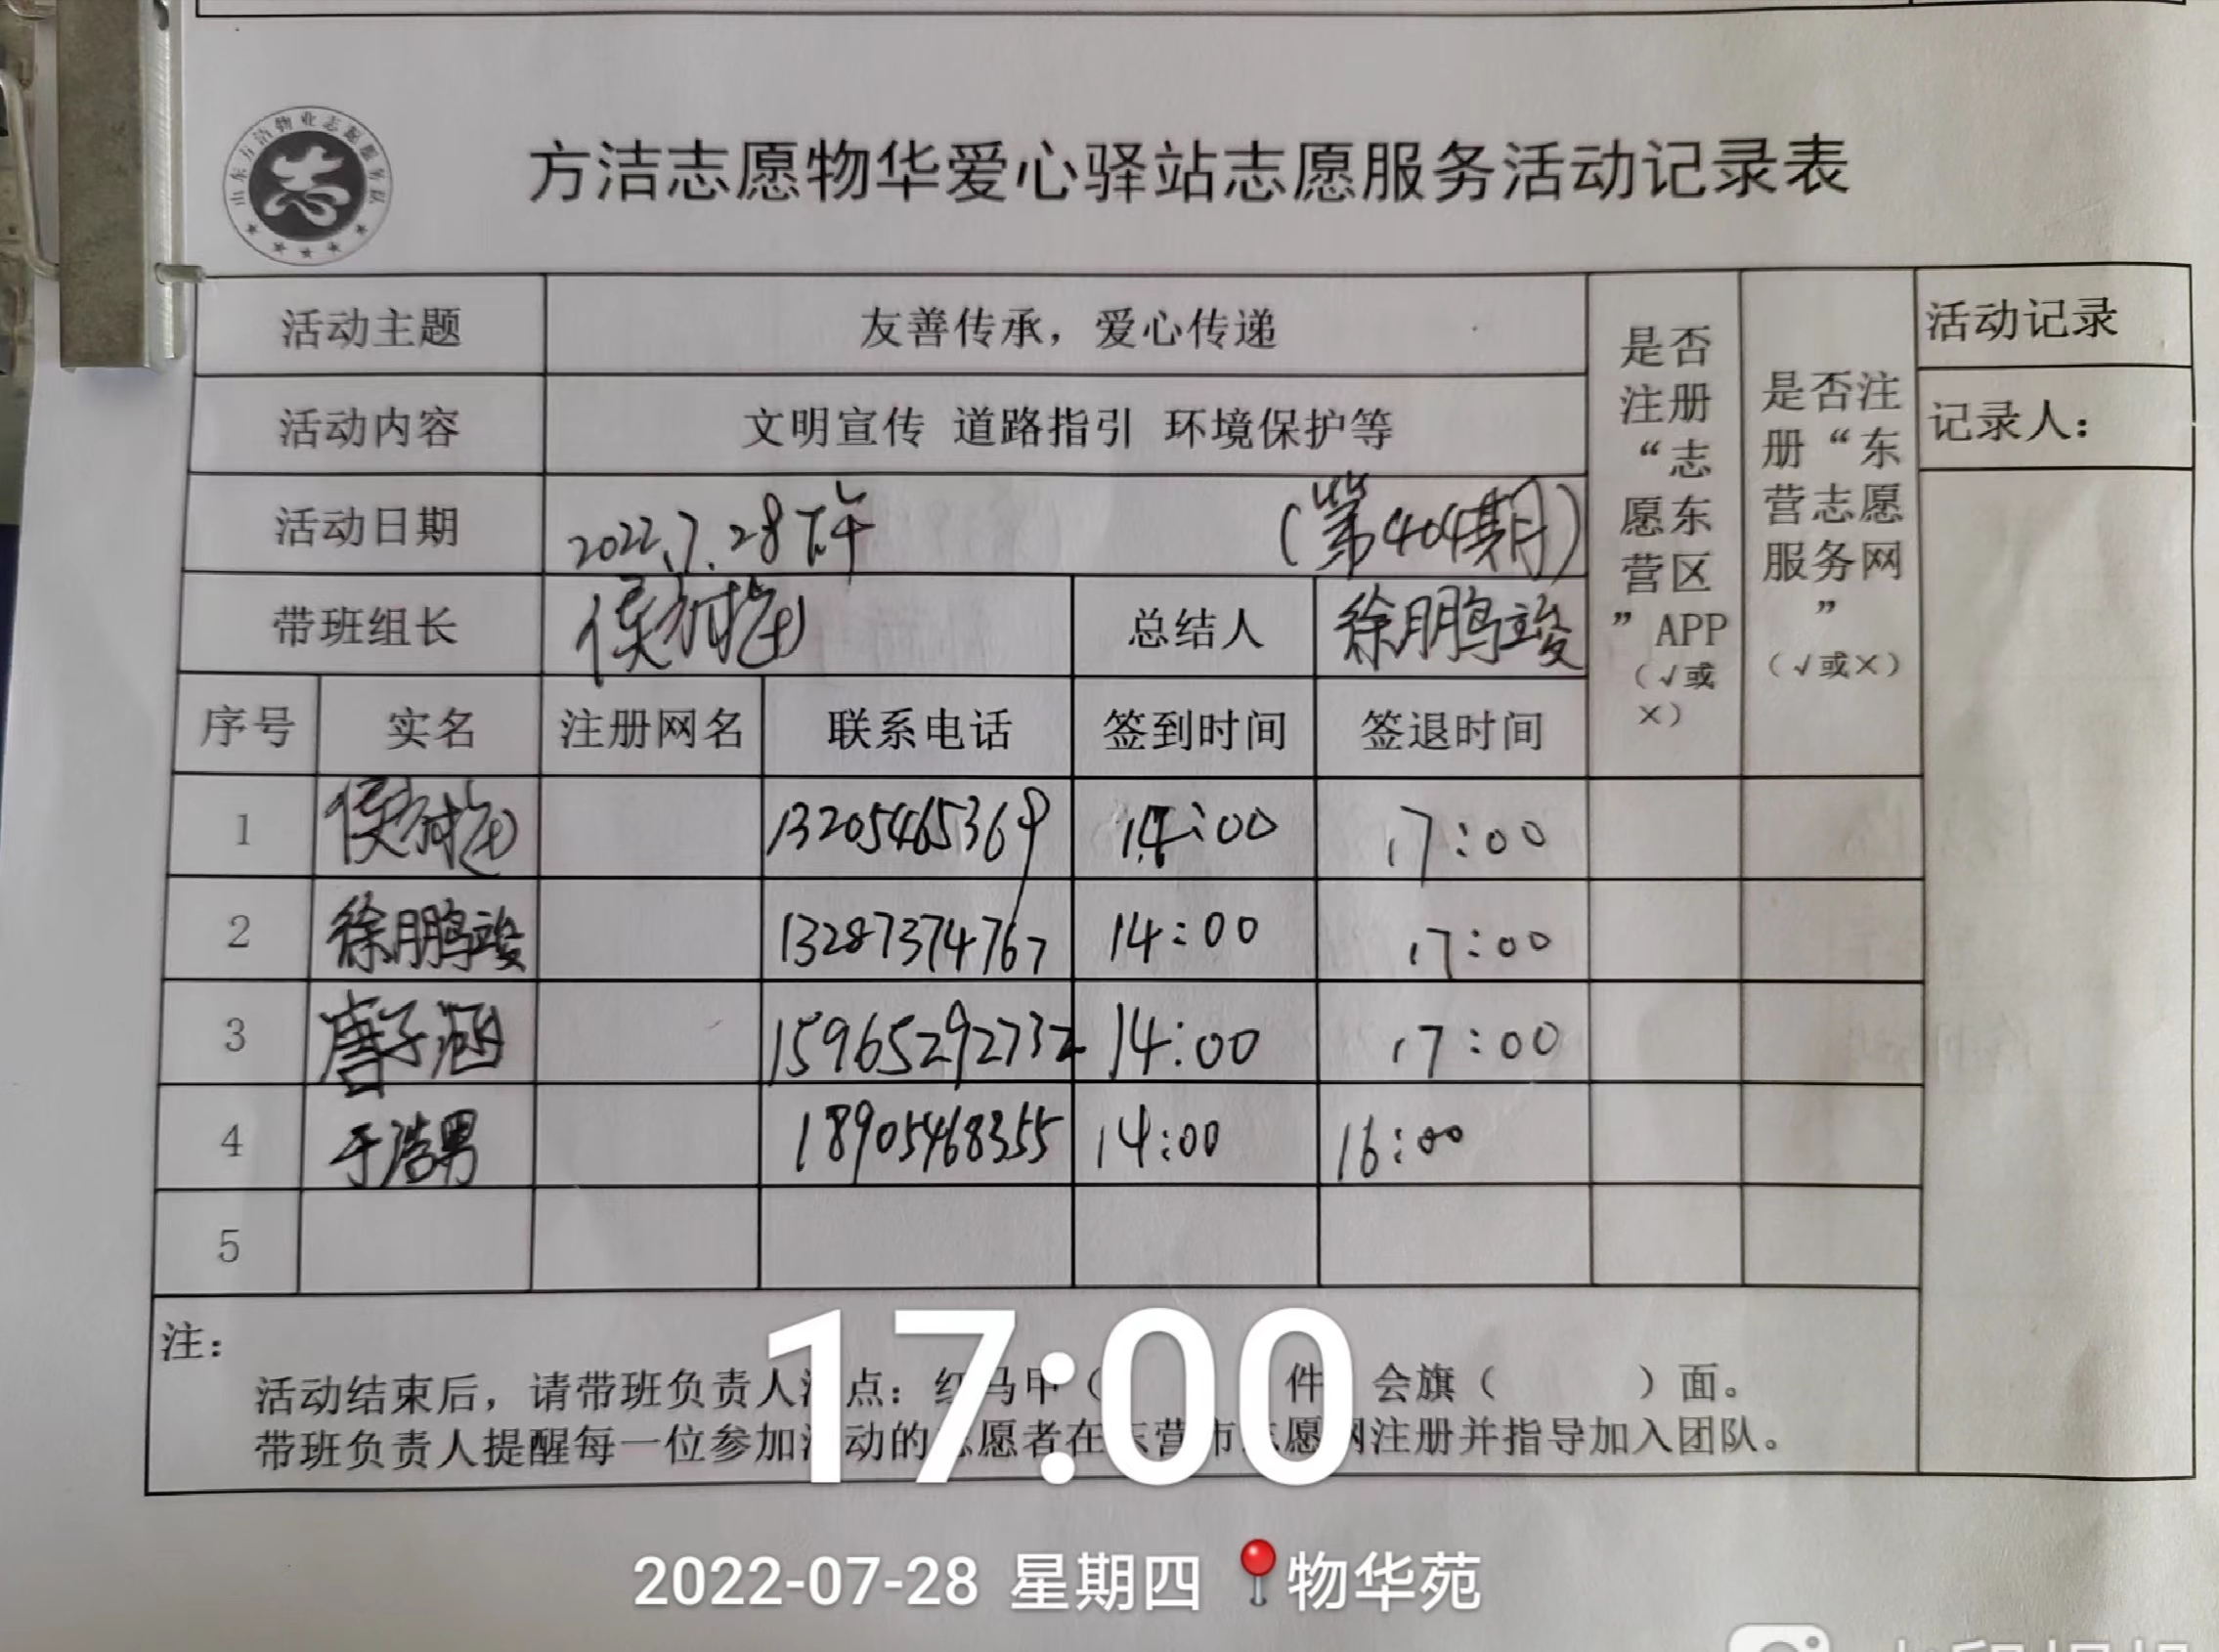 山东方洁物业志愿服务队
志
方洁志愿物华爱心驿站志愿服务活动记录表
活动主题 友善传承，爱心传递 是否注册“志愿东营区”APP（√或×） 是否注册“东营志愿服务网”（√或×） 活动记录
活动内容 文明宣传 道路指引 环境保护等 记录人：
活动日期 2022.7.28下午 （第404期）
带班组长 侯 总结人 徐鹏竣
序号 实名 注册网名 联系电话 签到时间 签退时间
1 侯 13205465369 14:00 17:00
2 徐鹏竣 13287374767 14:00 17:00
3 唐子涵 15965292732 14:00 17:00
4 于浩男 18905468355 14:00 16:00
5
注：
活动结束后，请带班负责人 点：红马甲（ 件 会旗（ ）面。
带班负责人提醒每一位参加活动的志愿者在东营市志愿网注册并指导加入团队。
17:00
2022-07-28 星期四 物华苑